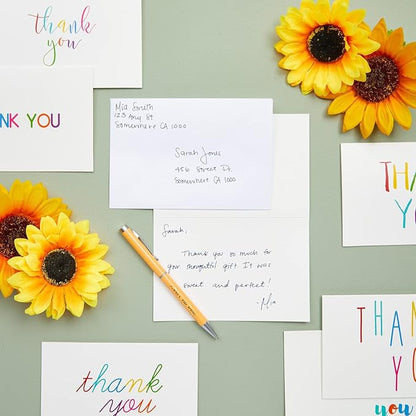 thank
you
NK YOU
Mia Smith
123 Any St.
Somewhere CA 1000
Sarah Jones
456 Street Dr.
Somewhere CA 1000
Sarah,
Thank you so much for
your thoughtful gift. It was
sweet and perfect!
- Mia
THA
YO
THAN
YO
thank
you
you